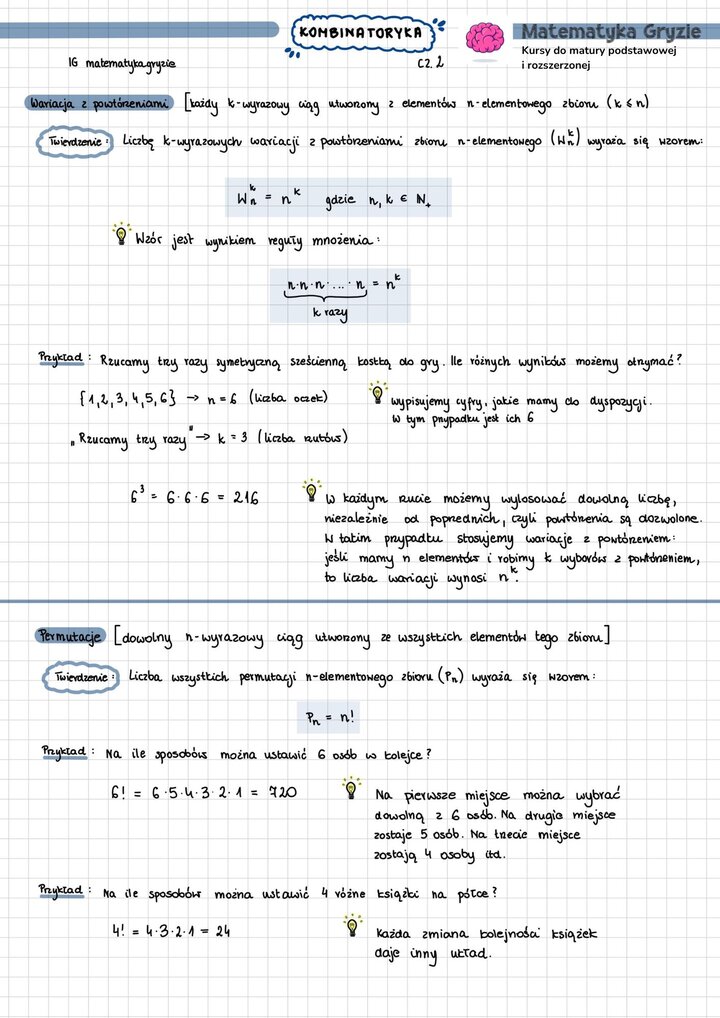 KOMBINATORYKA
Matematyka Gryzie
Kursy do matury podstawowej
i rozszerzonej
IG matematykagryzie
CZ. 2
Wariacja z powtórzeniami [każdy k-wyrazowy ciąg utworzony z elementów n-elementowego zbioru (k ≤ n)
Twierdzenie: Liczbę k-wyrazowych wariacji z powtórzeniami zbioru n-elementowego (Wₙᵏ) wyraża się wzorem:
Wₙᵏ = nᵏ gdzie n, k ∈ ℕ₊
Wzór jest wynikiem reguły mnożenia:
n·n·n·...·n = nᵏ
k razy
Przykład: Rzucamy trzy razy symetryczną sześcienną kostką do gry. Ile różnych wyników możemy otrzymać?
{1,2,3,4,5,6} → n = 6 (liczba oczek)
wypisujemy cyfry, jakie mamy do dyspozycji.
W tym przypadku jest ich 6
„Rzucamy trzy razy" → k = 3 (liczba rzutów)
6³ = 6·6·6 = 216
W każdym rzucie możemy wylosować dowolną liczbę,
niezależnie od poprzednich, czyli powtórzenia są dozwolone.
W takim przypadku stosujemy wariacje z powtórzeniem:
jeśli mamy n elementów i robimy k wyborów z powtórzeniem,
to liczba wariacji wynosi nᵏ.
Permutacje [dowolny n-wyrazowy ciąg utworzony ze wszystkich elementów tego zbioru]
Twierdzenie: Liczba wszystkich permutacji n-elementowego zbioru (Pₙ) wyraża się wzorem:
Pₙ = n!
Przykład: Na ile sposobów można ustawić 6 osób w kolejce?
6! = 6·5·4·3·2·1 = 720
Na pierwsze miejsce można wybrać
dowolną z 6 osób. Na drugie miejsce
zostaje 5 osób. Na trzecie miejsce
zostają 4 osoby itd.
Przykład: Na ile sposobów można ustawić 4 różne książki na półce?
4! = 4·3·2·1 = 24
Każda zmiana kolejności książek
daje inny układ.